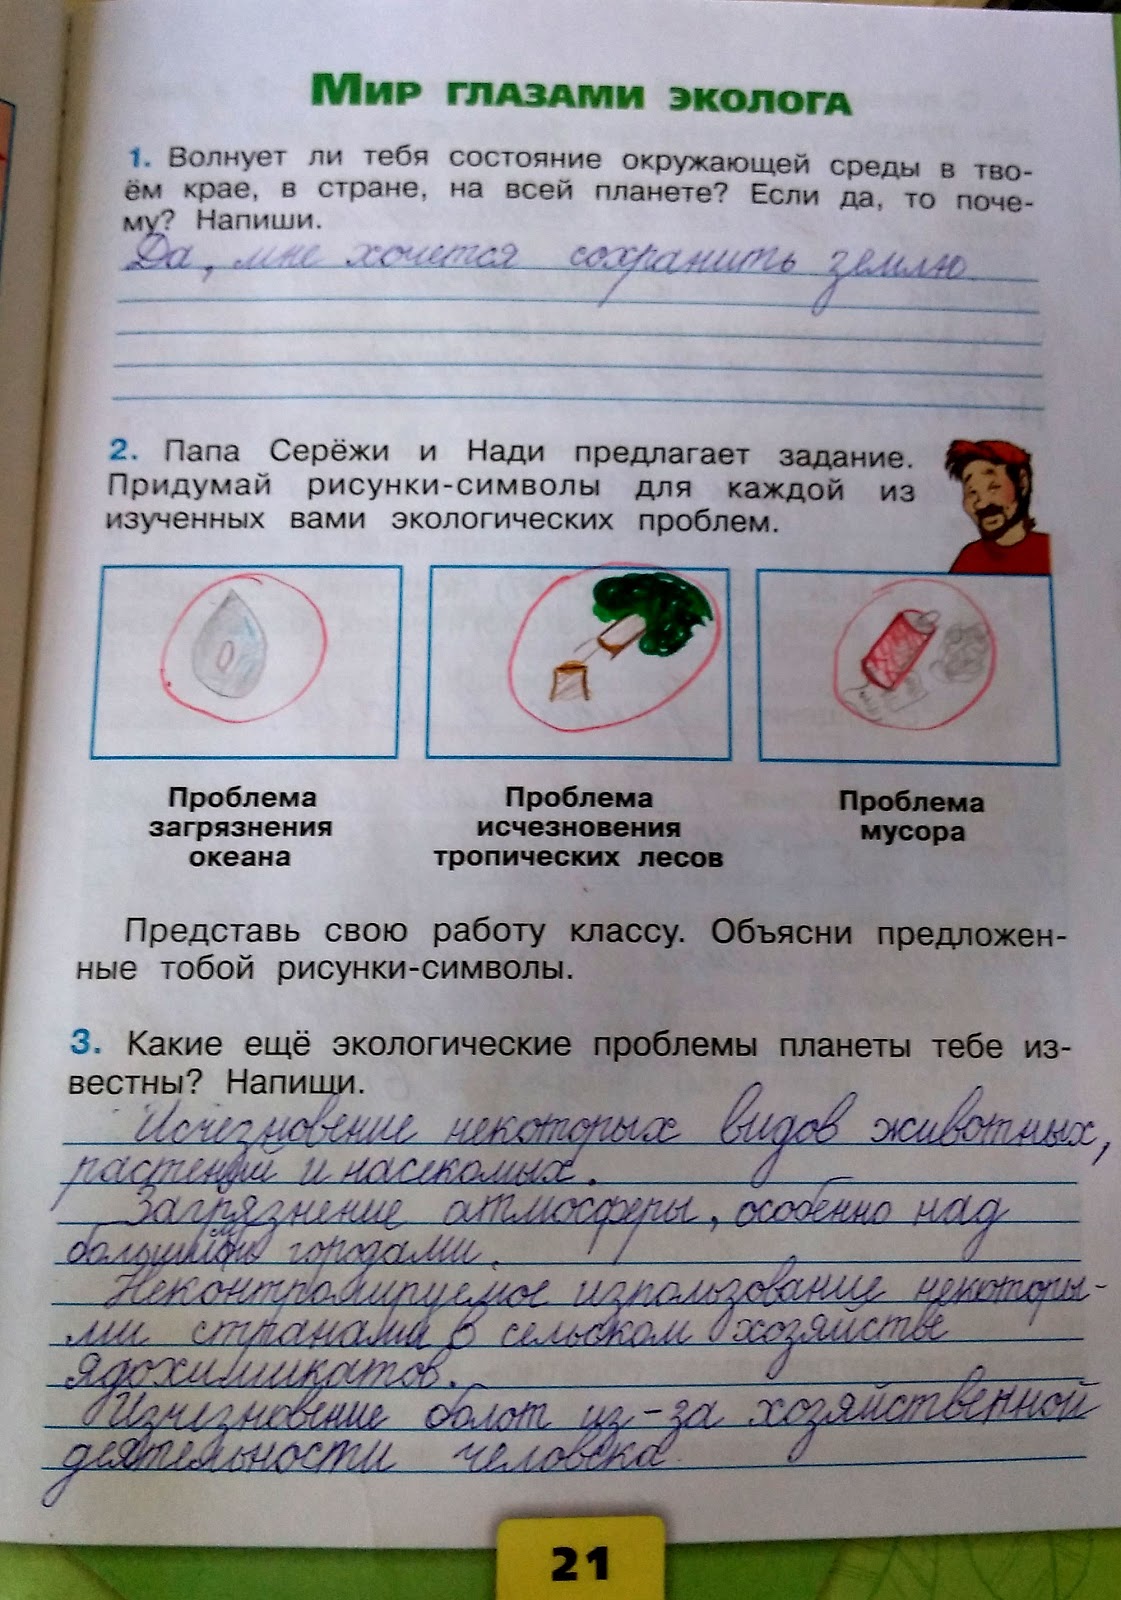 Мир глазами эколога
1. Волнует ли тебя состояние окружающей среды в тво-
ём крае, в стране, на всей планете? Если да, то поче-
му? Напиши.
Да, мне хочется сохранить землю
2. Папа Серёжи и Нади предлагает задание.
Придумай рисунки-символы для каждой из
изученных вами экологических проблем.
Проблема
загрязнения
океана
Проблема
исчезновения
тропических лесов
Проблема
мусора
Представь свою работу классу. Объясни предложен-
ные тобой рисунки-символы.
3. Какие ещё экологические проблемы планеты тебе из-
вестны? Напищи.
Исчезновение некоторых видов животных,
растений и насекомых.
Загрязнение атмосферы, особенно над
большими городами.
Неконтролируемое использование некоторы-
ми странами в сельском хозяйстве
ядохимикатов.
Изчезновение болот из-за хозяйственной
деятельности человека
21